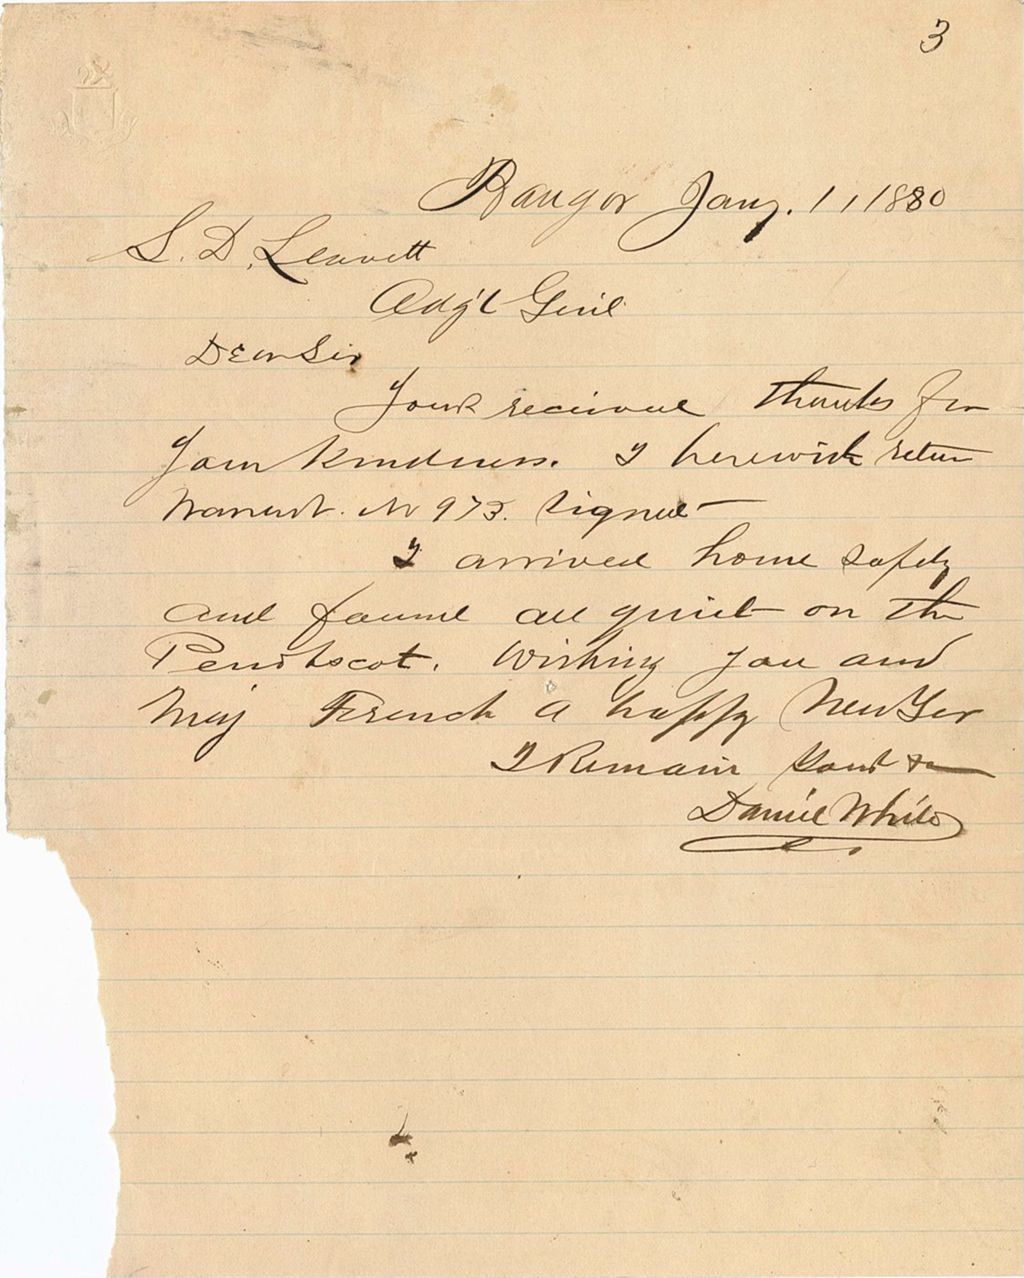 3
Bangor Jany. 1, 1880
S. D. Leavett
Adj't Genl
Dear Sir
Yours received thanks for
your kindness. I herewith return
Warrant. No 973. signed
I arrived home safely
and found all quiet on the
Penobscot. Wishing you and
Maj French a happy New Year
I Remain Yours &c
Daniel White